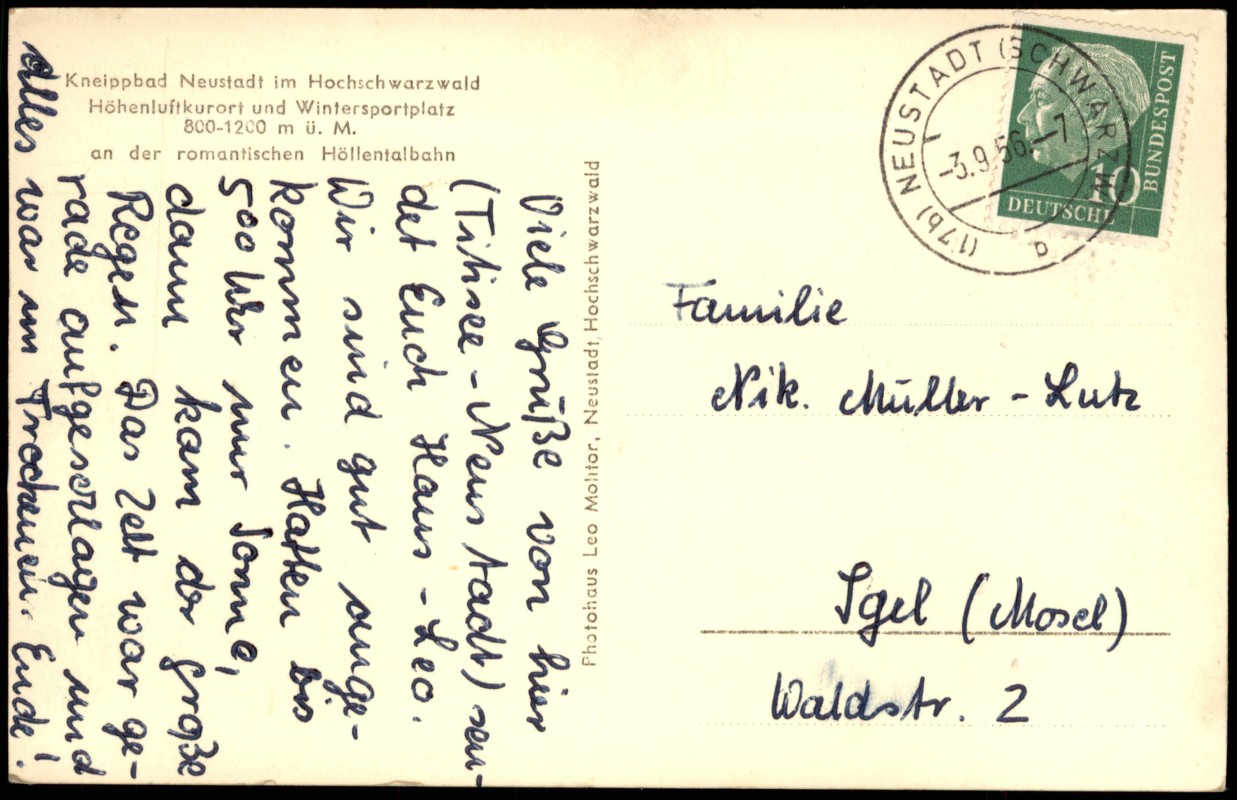 Kneippbad Neustadt im Hochschwarzwald
Höhenluftkurort und Wintersportplatz
800-1200 m ü. M.
an der romantischen Höllentalbahn
Viele Grüße von hier
(Titisee - Neustadt) sen-
det Euch Hans - Leo.
Wir sind gut ange-
kommen. Hatten bis
500 Uhr nur Sonne,
dann kam der große
Regen. Das Zelt war ge-
rade aufgeschlagen und
alles war im Trockenen. Ende!
Photohaus Leo Molitor, Neustadt, Hochschwarzwald
(17b) NEUSTADT (SCHWARZW
-3.9.56.-7
a
10
DEUTSCHE
BUNDESPOST
Familie
Nik. Müller - Lutz
Igel (Mosel)
Waldstr. 2